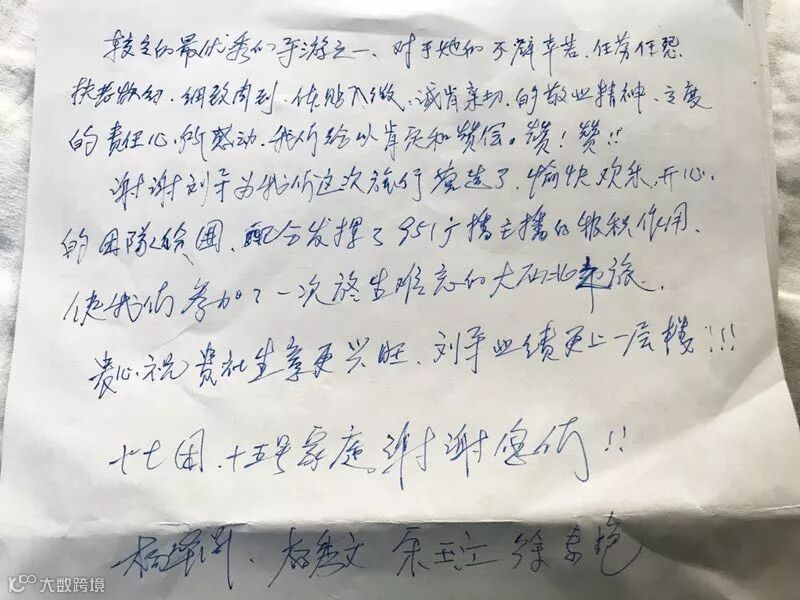 较之的最优秀的导游之一、对于她的不辞辛苦、任劳任怨、
执着、细致周到、体贴入微、诚肯亲切、的敬业精神、
的责任心、所感动、我们给以肯定和赞偿。赞！赞！！
谢谢刘导为我们这次旅行营造了、愉快欢乐、开心、
的团队氛围、配合发挥了951广播主播的积极作用、
使我们参加了一次终生难忘的大西北之旅、
衷心祝贵社生意更兴旺、刘导业绩更上一层楼！！！
十七团、十五号家庭谢谢您们！！
大数跨境